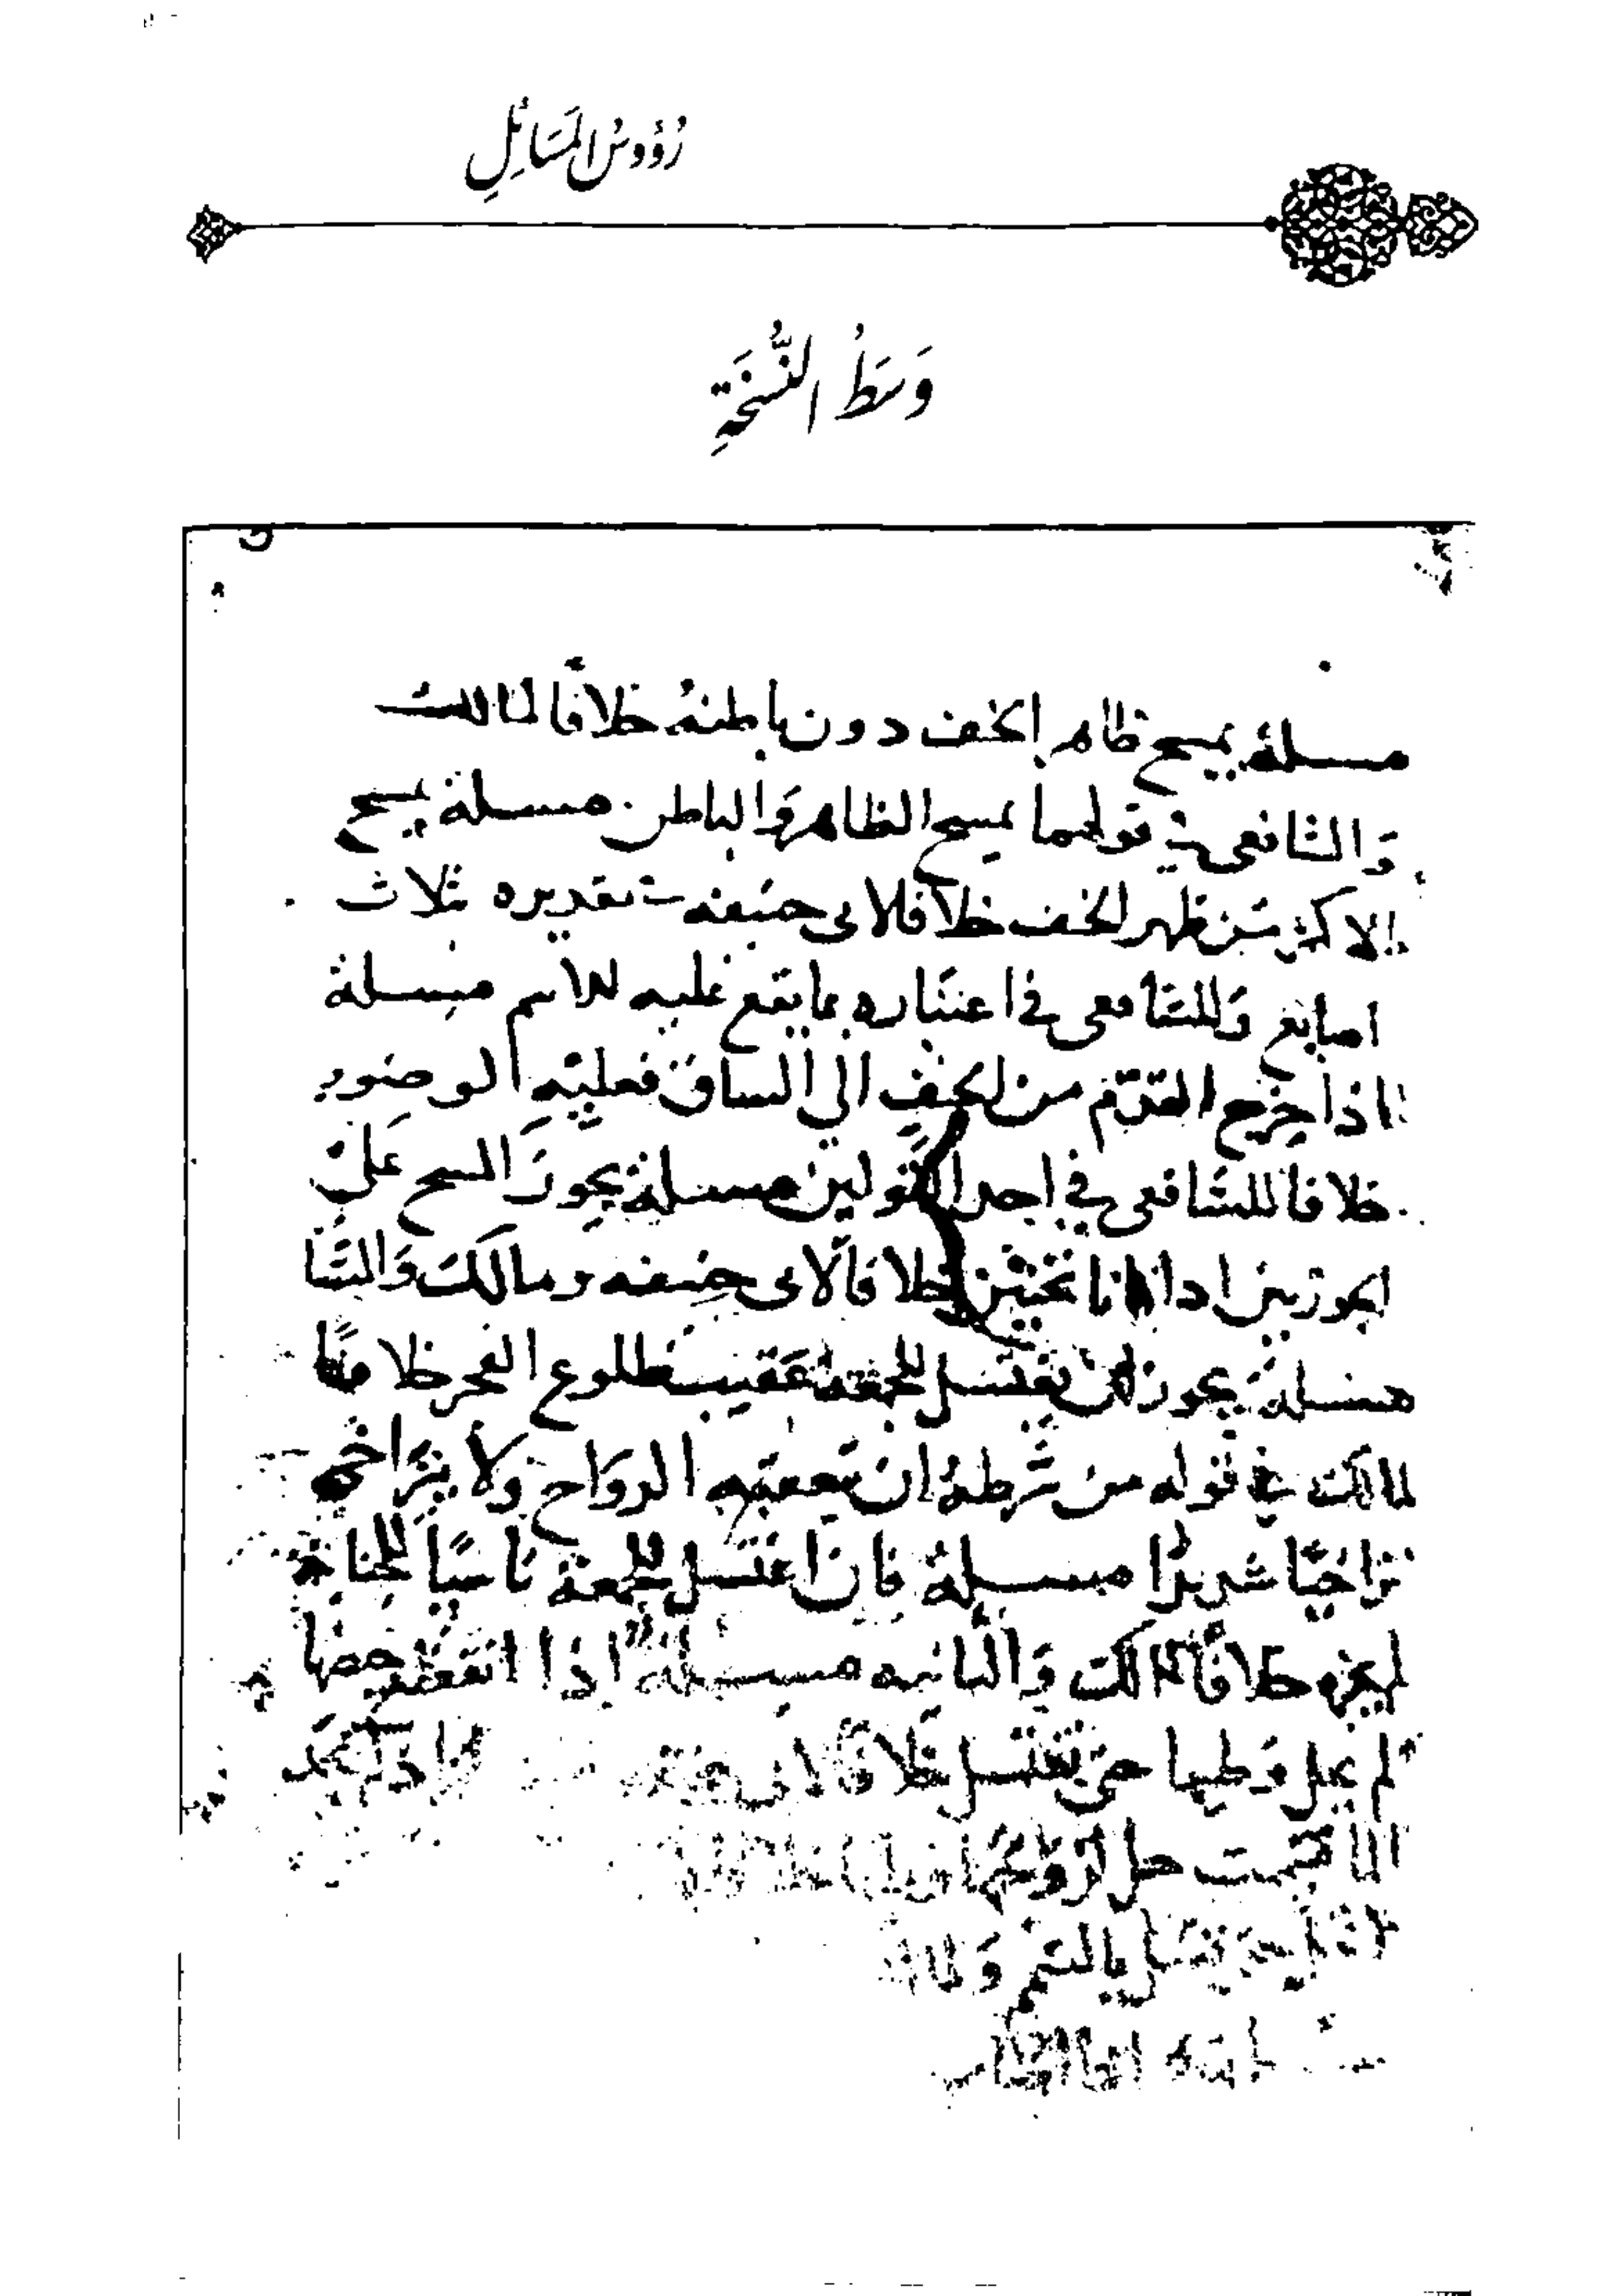 رُؤُوسُ المَسَائِلِ
وَسَطُ النُّسْخَةِ
مسلة يمسح ظاهر الخف دون باطنه خلافا لمالك
وَالشافعى في قولهما يمسح الظاهر وَالباطن مسلة يمسح
الاكثر من ظهر الخف خلافا لابى حنيفه في تقديره بثلاث
اصابع وَللشافعى في اعتباره بما يقع عليه الاسم مسلة
اذا خرج القدم من الخف الى الساق فعليه الوضوء
خلافا للشافعى في احد القولين مسلة يجوز المسح على
الجوربين اذا كانا ثخينين خلافا لابى حنيفه ومالك وَالشا
مسلة يجوز ان يغتسل للجمعة عقيب طلوع الفجر خلافا
لمالك في قوله من شرطه ان يتعقبه الرواح ولا يتراخى
تراخيا شديدا مسلة فان اغتسل للجمعة ناسيا للجنابة
لم يجزه خلافا لمالك وَالثانيه مسلة اذا انقطع حيضها
لم يحل وطيها حتى تغتسل خلافا لابى حنيفه اذا لم تجد
الما تيممت حل لزوجها
بالتيمم وَ